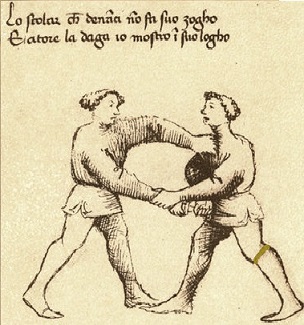 Lo scolar ch̃ denãci nõ fa suo zogho
E a tore la daga io mostro ĩ suo logho